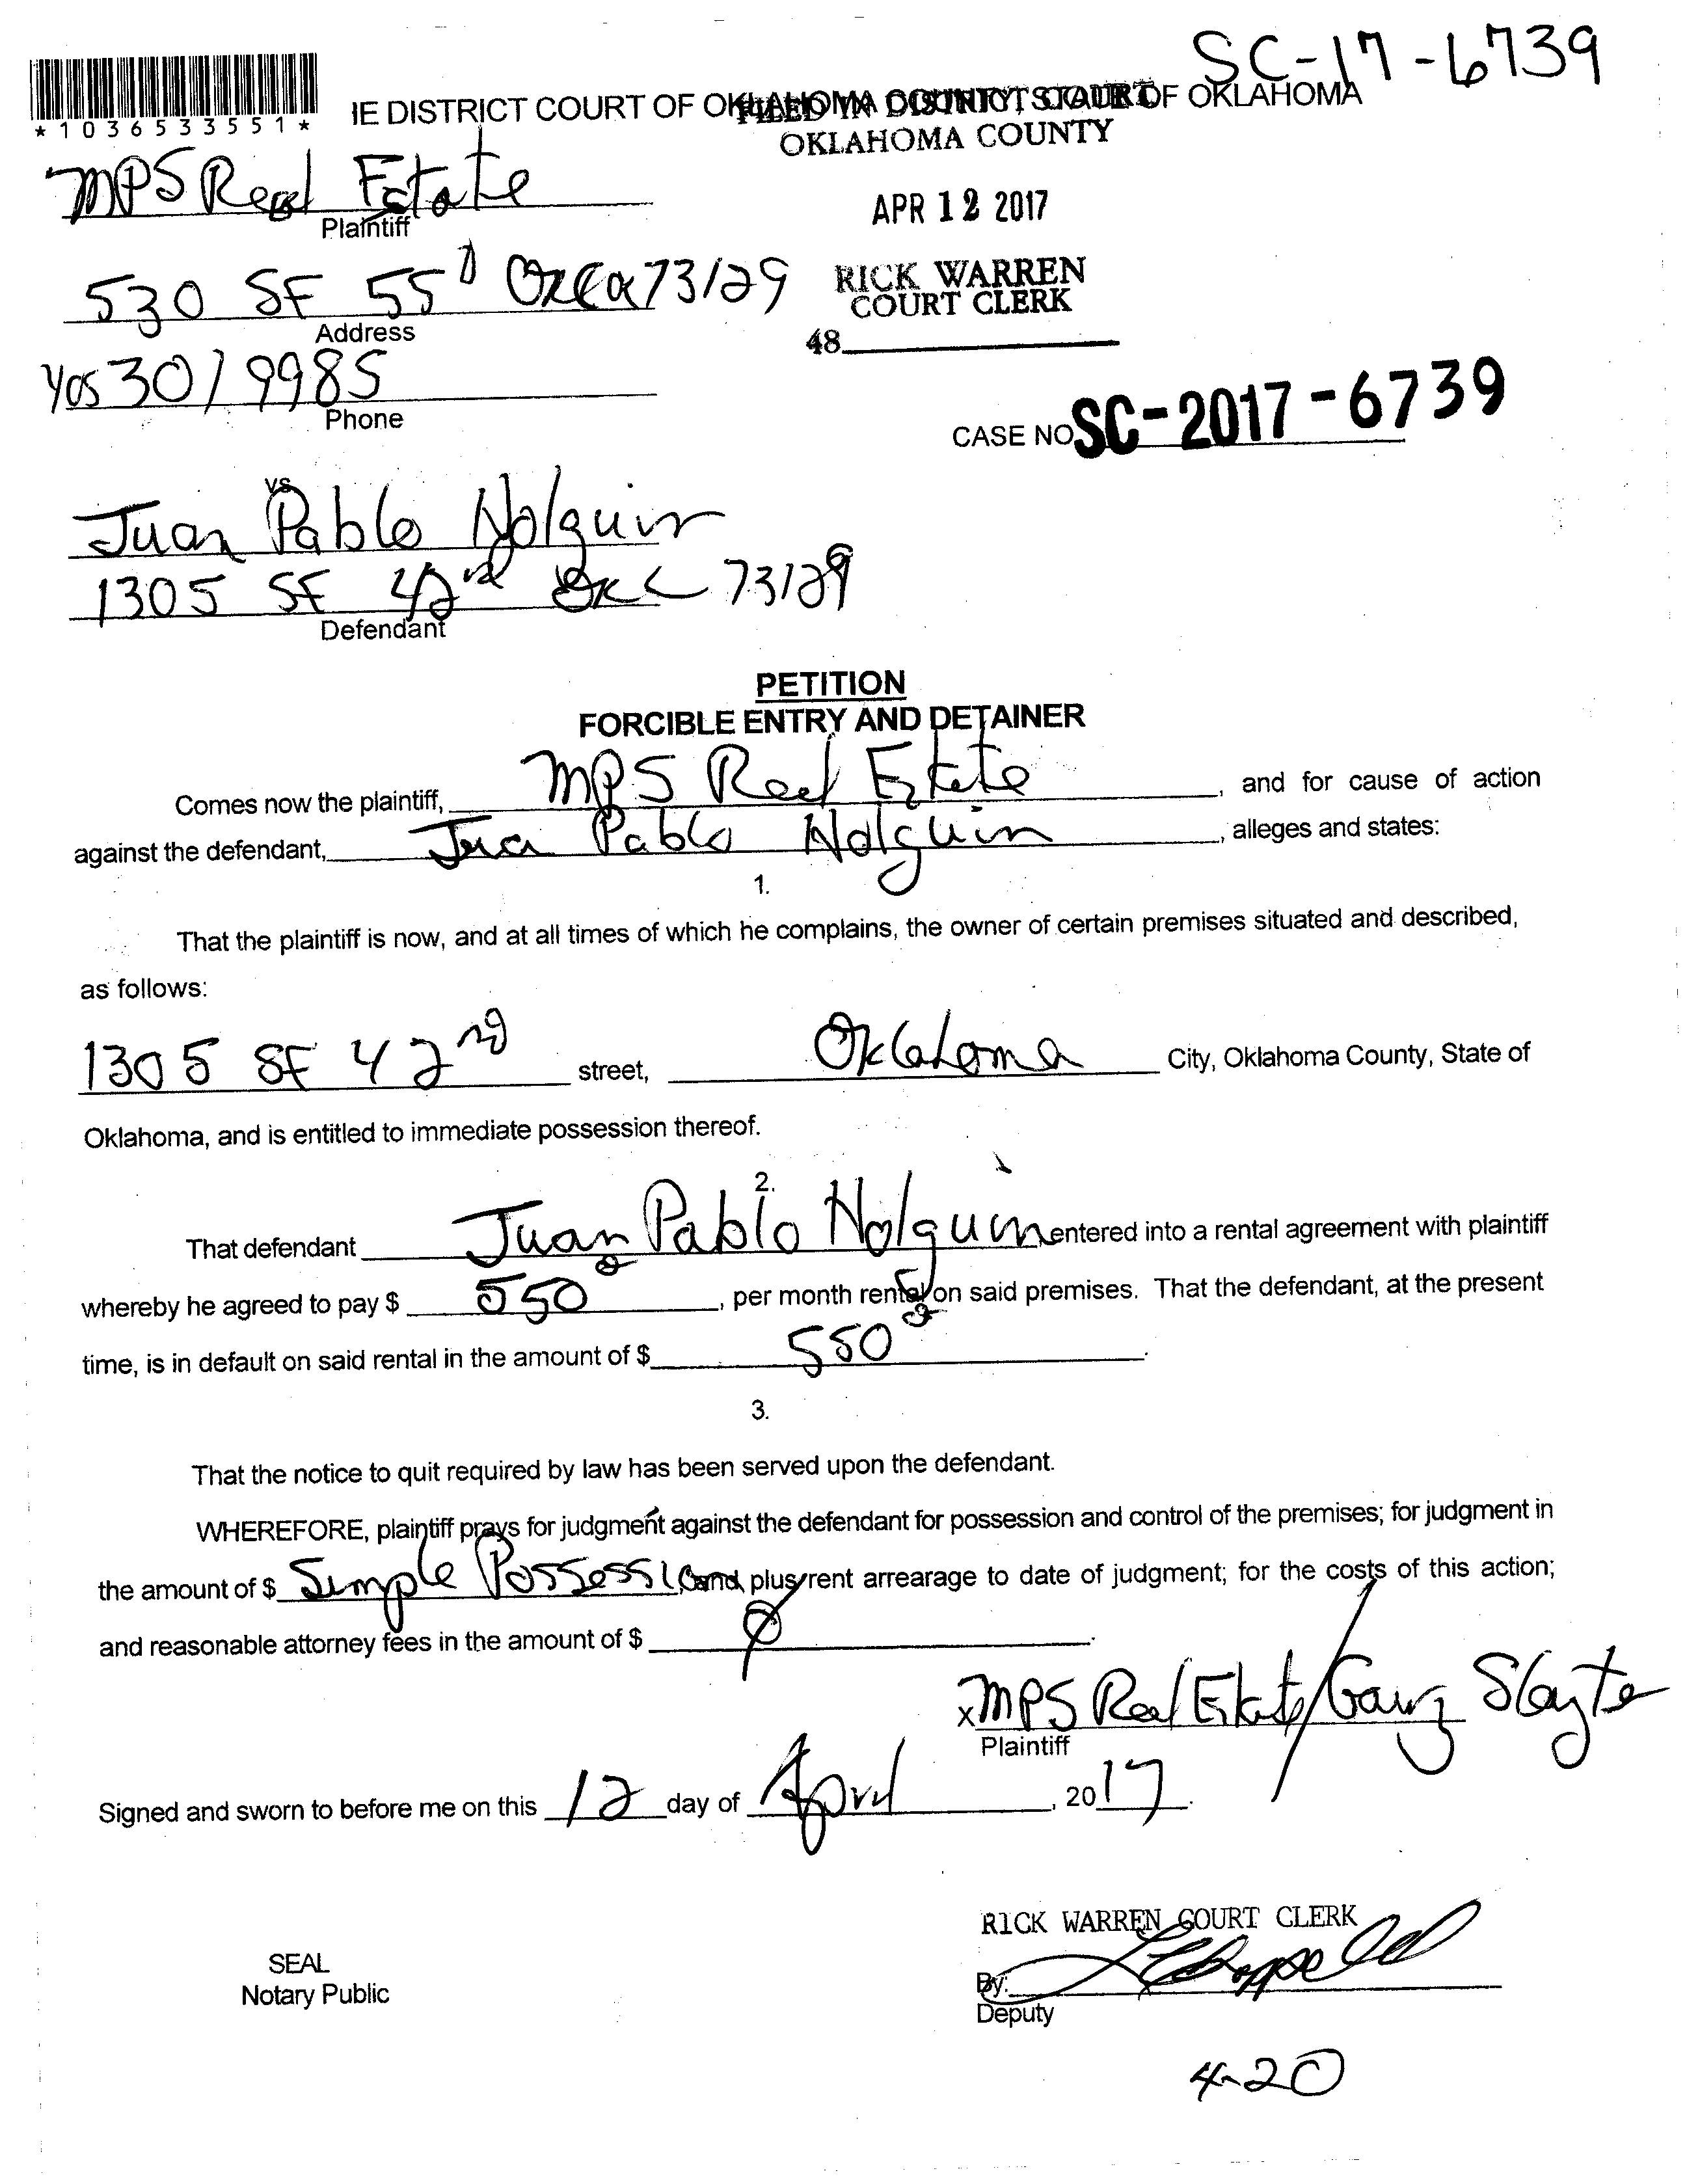 SC-17-6739
*1036533551*
IE DISTRICT COURT OF OKLAHOMA COUNTY, STATE OF OKLAHOMA
FILED IN DISTRICT COURT
OKLAHOMA COUNTY
MPS Real Estate
Plaintiff
APR 12 2017
530 SE 55 73129
Address
RICK WARREN
COURT CLERK
48
405 301 9985
Phone
CASE NO. SC-2017-6739
vs
Juan Pablo Holguin
1305 SE 42nd OKC 73129
Defendant
PETITION
FORCIBLE ENTRY AND DETAINER
Comes now the plaintiff, MPS Real Estate, and for cause of action
against the defendant, Jua Pablo Holguin, alleges and states:
1.
That the plaintiff is now, and at all times of which he complains, the owner of certain premises situated and described,
as follows:
1305 SE 42nd street, Oklahoma City, Oklahoma County, State of
Oklahoma, and is entitled to immediate possession thereof.
2.
That defendant Juan Pablo Holguin entered into a rental agreement with plaintiff
whereby he agreed to pay $ 550, per month rental on said premises. That the defendant, at the present
time, is in default on said rental in the amount of $ 550.
3.
That the notice to quit required by law has been served upon the defendant.
WHEREFORE, plaintiff prays for judgment against the defendant for possession and control of the premises; for judgment in
the amount of $ Simple Possession, and plus rent arrearage to date of judgment; for the costs of this action;
and reasonable attorney fees in the amount of $ 0.
x MPS Real Estate/Gary Slayte
Plaintiff
Signed and sworn to before me on this 12 day of April, 2017.
RICK WARREN COURT CLERK
SEAL
Notary Public
By:
Deputy
4-20